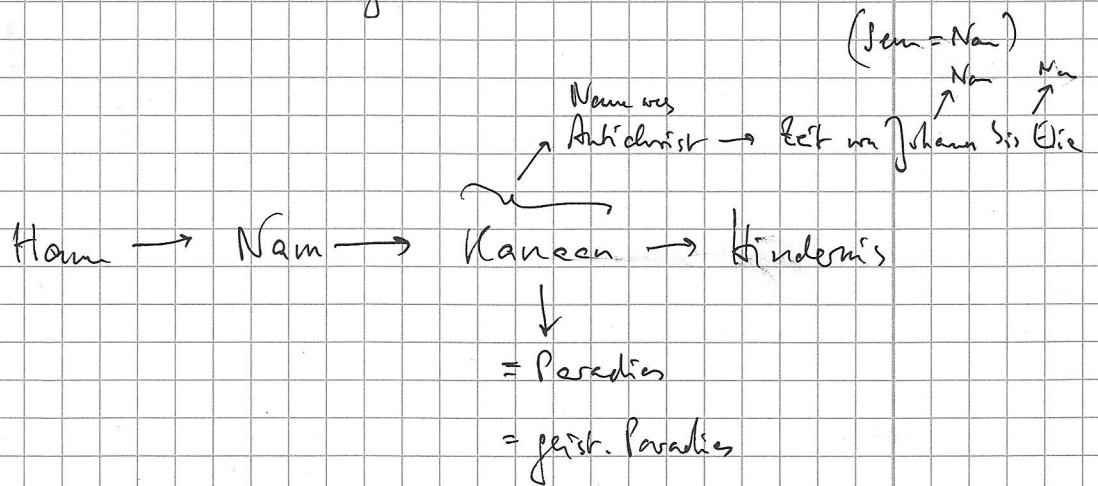 (Sem = Nam)
Nam Nam
Nam
Antichrist → Zeit von Johann bis Elia
Ham → Nam → Kanaan → Hindernis
= Paradies
= geist. Paradies